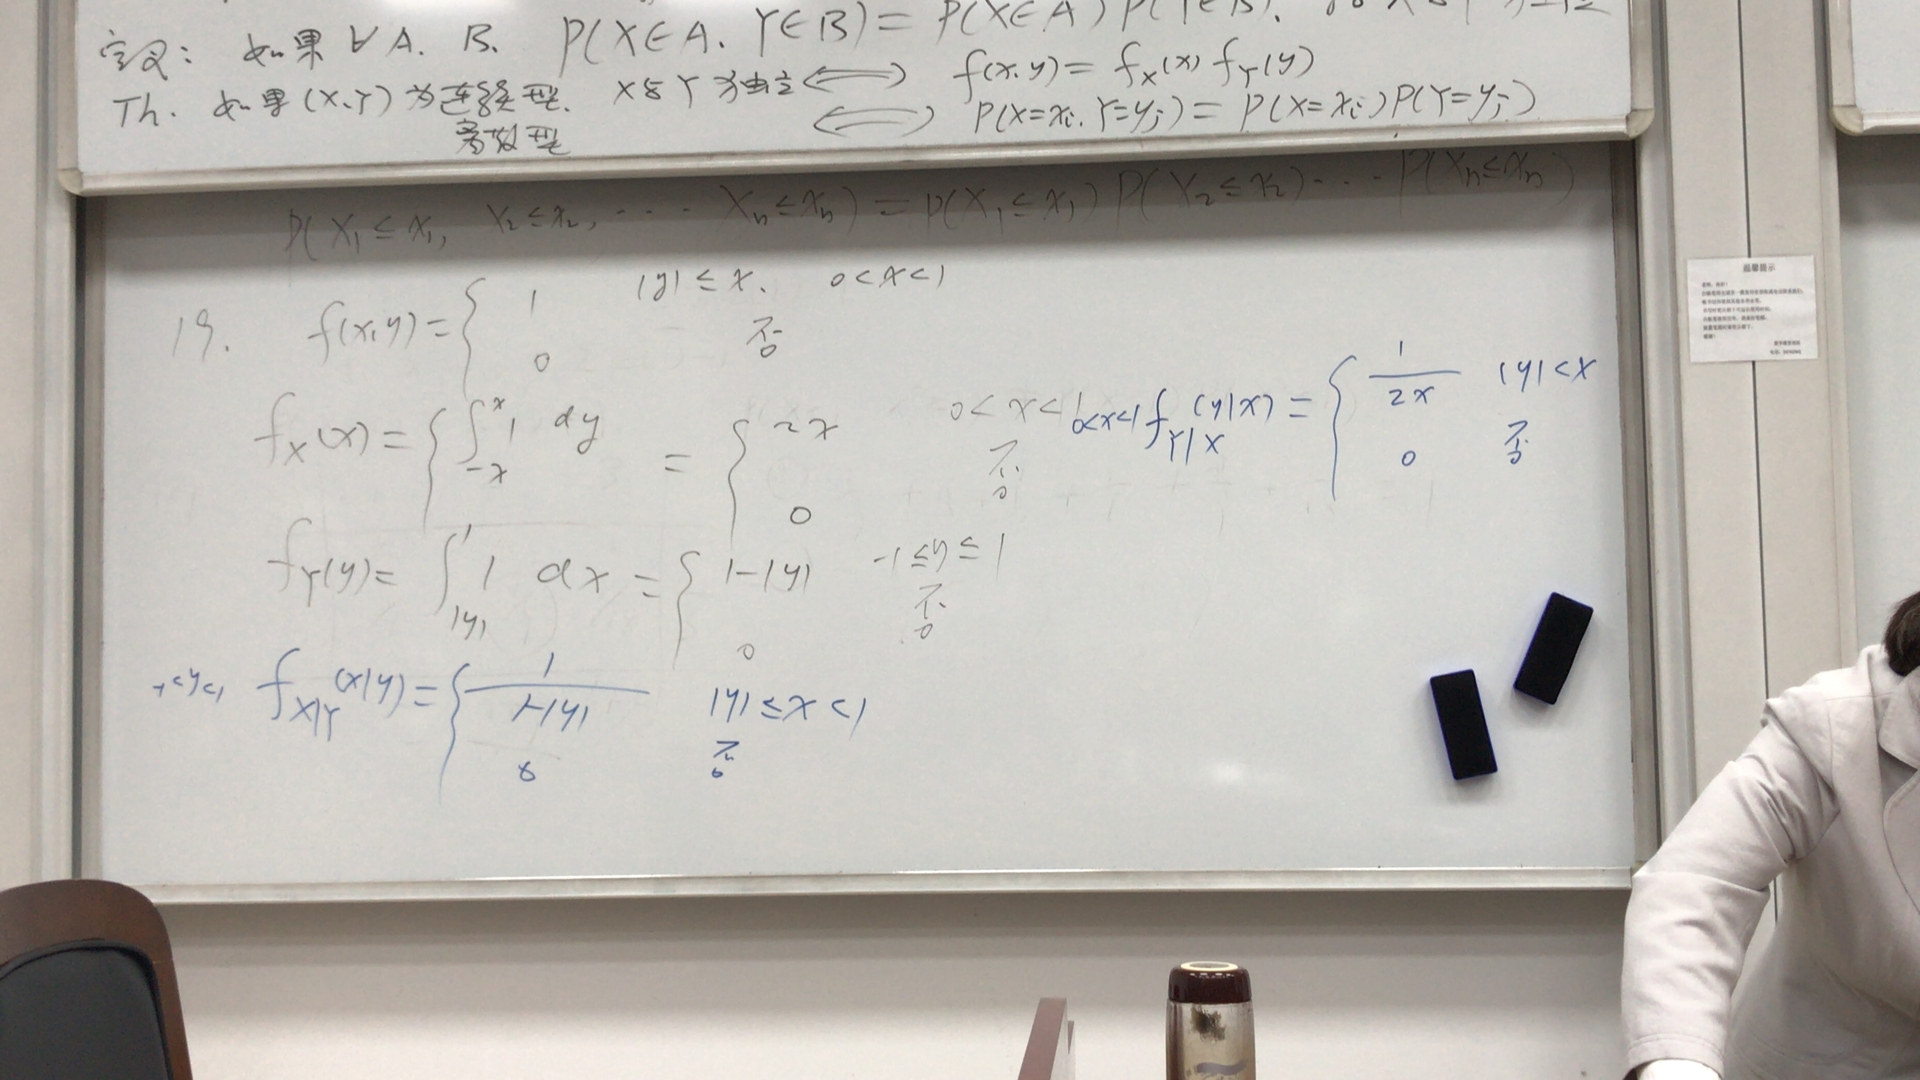 定义: 如果 ∀A. B. P(X∈A. Y∈B) = P(X∈A) P(Y∈B).
Th. 如果 (X,Y) 为连续型. X与Y独立 ⟺ f(x,y) = f_X(x) f_Y(y)
离散型 ⟺ P(X=x_i. Y=y_j) = P(X=x_i) P(Y=y_j)
P(X_1≤x_1, X_2≤x_2, ⋯ X_n≤x_n) = P(X_1≤x_1) P(X_2≤x_2) ⋯ P(X_n≤x_n)
19. f(x,y) = { 1 |y|≤x. 0<x<1
0 否
f_X(x) = { ∫_{-x}^{x} 1 dy = { 2x 0<x<1
0 否
f_Y(y) = ∫_{|y|}^{1} 1 dx = { 1-|y| -1≤y≤1
0 否
-1<y<1 f_{X|Y}(x|y) = { 1/(1-|y|) |y|≤x<1
0 否
0<x<1 f_{Y|X}(y|x) = { 1/(2x) |y|<x
0 否
温馨提示